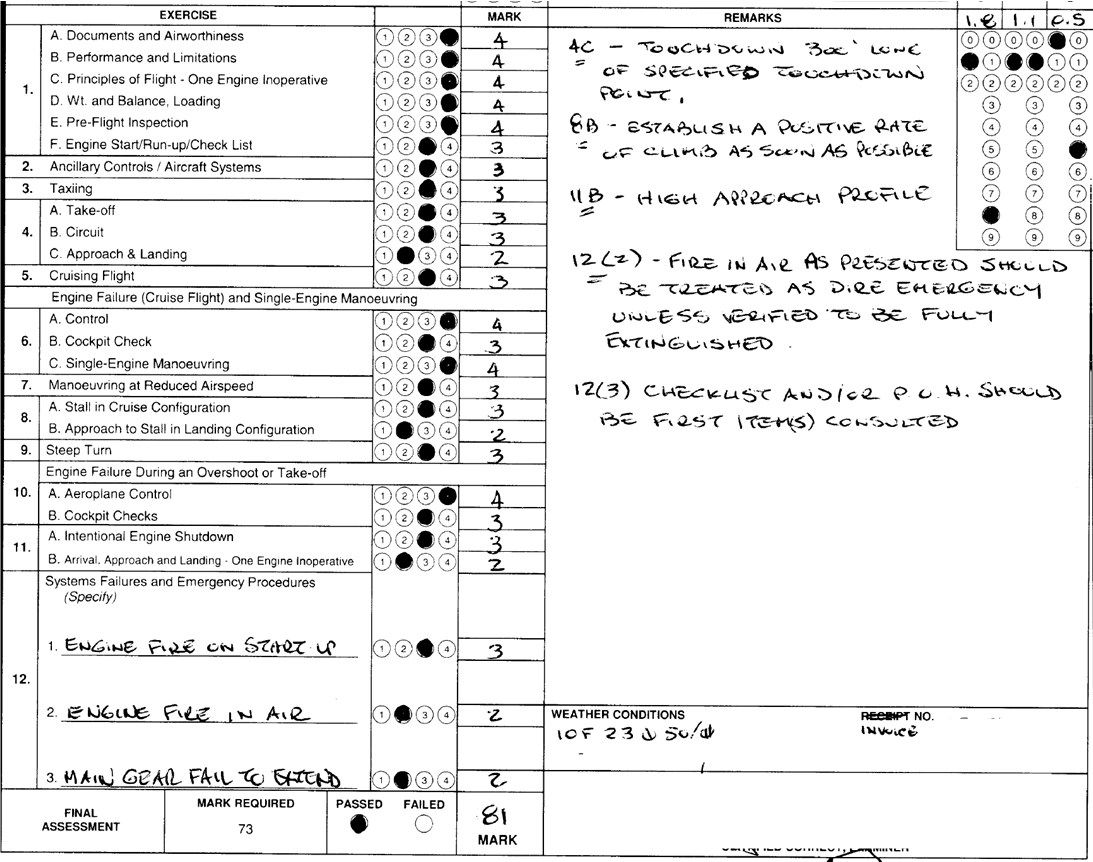 EXERCISE MARK REMARKS 1.8 1.1 0.5
A. Documents and Airworthiness 1 2 3 4
B. Performance and Limitations 1 2 3 4
1. C. Principles of Flight - One Engine Inoperative 1 2 3 4
D. Wt. and Balance, Loading 1 2 3 4
E. Pre-Flight Inspection 1 2 3 4
F. Engine Start/Run-up/Check List 1 2 4 3
2. Ancillary Controls / Aircraft Systems 1 2 4 3
3. Taxiing 1 2 4 3
A. Take-off 1 2 4 3
4. B. Circuit 1 2 4 3
C. Approach & Landing 1 3 4 2
5. Cruising Flight 1 2 4 3
Engine Failure (Cruise Flight) and Single-Engine Manoeuvring
A. Control 1 2 3 4
6. B. Cockpit Check 1 2 4 3
C. Single-Engine Manoeuvring 1 2 3 4
7. Manoeuvring at Reduced Airspeed 1 2 4 3
8. A. Stall in Cruise Configuration 1 2 4 3
B. Approach to Stall in Landing Configuration 1 3 4 2
9. Steep Turn 1 2 4 3
Engine Failure During an Overshoot or Take-off
10. A. Aeroplane Control 1 2 3 4
B. Cockpit Checks 1 2 4 3
11. A. Intentional Engine Shutdown 1 2 4 3
B. Arrival, Approach and Landing - One Engine Inoperative 1 3 4 2
Systems Failures and Emergency Procedures
(Specify)
1. ENGINE FIRE ON START UP 1 2 4 3
12.
2. ENGINE FIRE IN AIR 1 3 4 2
3. MAIN GEAR FAIL TO EXTEND 1 3 4 2
FINAL ASSESSMENT
MARK REQUIRED
73
PASSED FAILED
81
MARK
4C - TOUCHDOWN 300' LONG
OF SPECIFIED TOUCHDOWN
POINT.
8B - ESTABLISH A POSITIVE RATE
OF CLIMB AS SOON AS POSSIBLE
11B - HIGH APPROACH PROFILE
12(2) - FIRE IN AIR AS PRESENTED SHOULD
BE TREATED AS DIRE EMERGENCY
UNLESS VERIFIED TO BE FULLY
EXTINGUISHED.
12(3) CHECKLIST AND/OR P.O.H. SHOULD
BE FIRST ITEM(S) CONSULTED
0 0 0 0 0
1 1 1
2 2 2 2 2 2
3 3 3
4 4 4
5 5
6 6 6
7 7 7
8 8
9 9 9
WEATHER CONDITIONS
10F 23
RECEIPT NO.
INVOICE
CERTIFIED CORRECT, EXAMINER